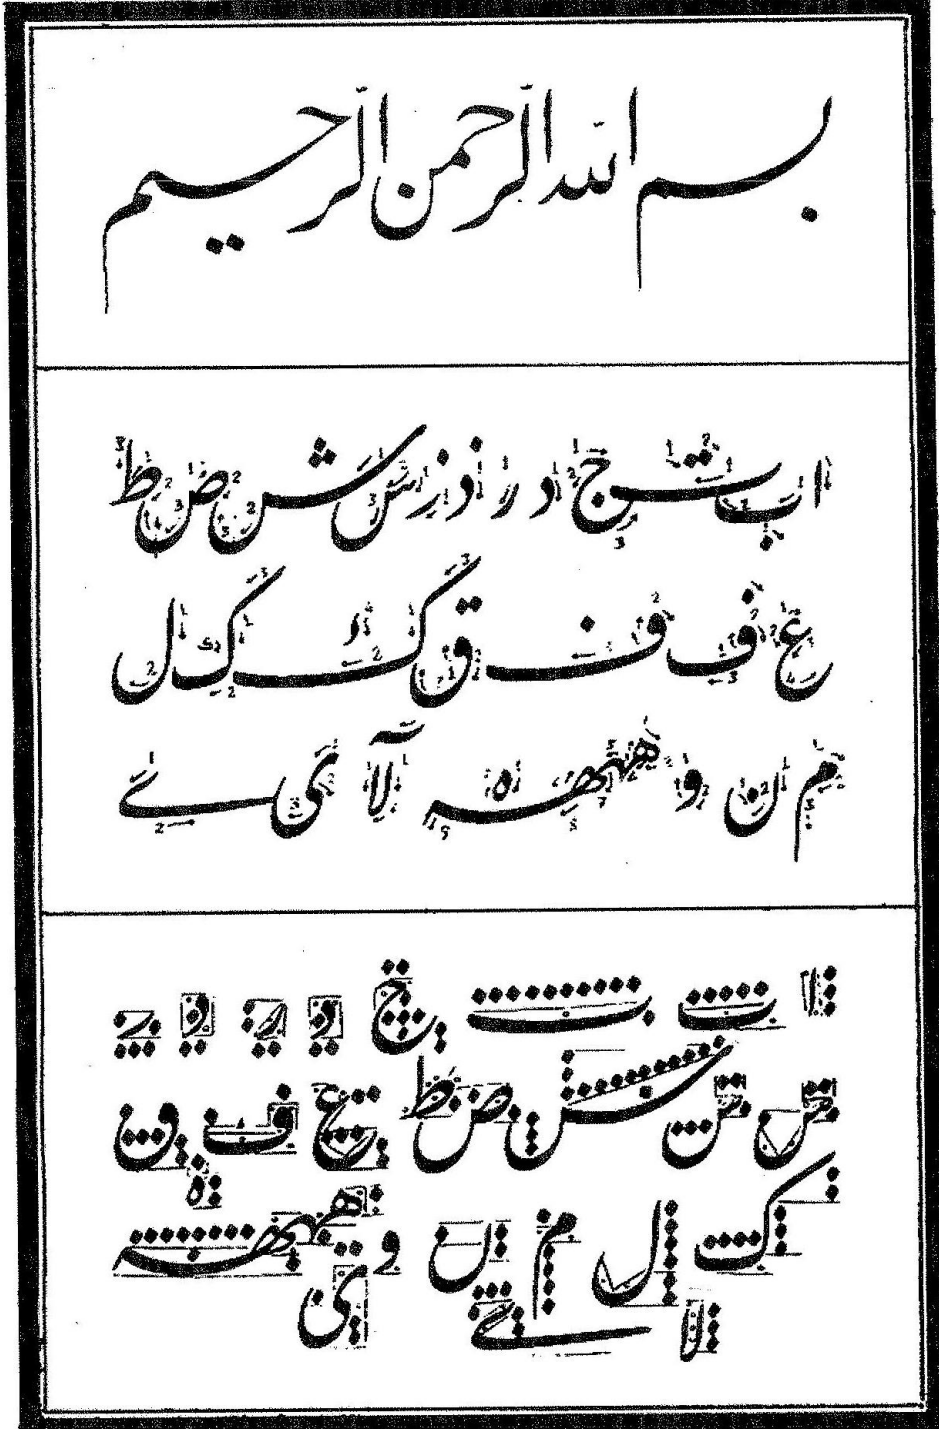 بسم الله الرحمن الرحیم
ا ب ت ج د ر ذ ز س ش ص ط
ع ف ف ق ک ک ل
م ن و ههہہ ہ لا ی ے
ا ب ب ج د ر د ر
س س س ص ط ع ف ق
ک ل م ن و ههہہ ہ
لا ے ی